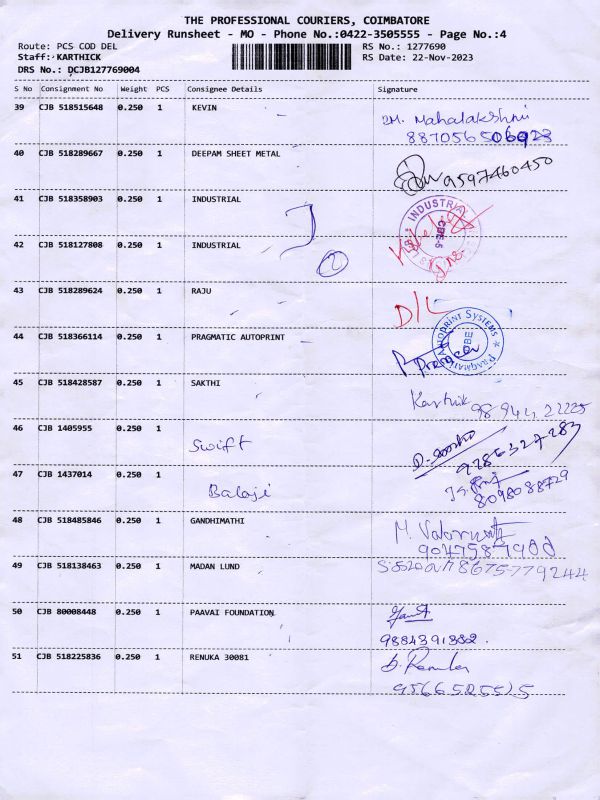 THE PROFESSIONAL COURIERS, COIMBATORE
Delivery Runsheet - MO - Phone No.:0422-3505555 - Page No.:4
Route: PCS COD DEL RS No.: 1277690
Staff: KARTHICK RS Date: 22-Nov-2023
DRS No.: DCJB127769004
S No Consignment No Weight PCS Consignee Details Signature
39 CJB 518515648 0.250 1 KEVIN
Mahalakshmi
40 CJB 518289667 0.250 1 DEEPAM SHEET METAL
9597460450
41 CJB 518358903 0.250 1 INDUSTRIAL
INDUSTRIAL
CBE-5
42 CJB 518127808 0.250 1 INDUSTRIAL
2
43 CJB 518289624 0.250 1 RAJU
D/L
44 CJB 518366114 0.250 1 PRAGMATIC AUTOPRINT
PRAGMATIC AUTOPRINT SYSTEMS
CBE
45 CJB 518428587 0.250 1 SAKTHI
Karthik
46 CJB 1405955 0.250 1 Swift
9286327283
47 CJB 1437014 0.250 1 Balaji
8098088729
48 CJB 518485846 0.250 1 GANDHIMATHI
49 CJB 518138463 0.250 1 MADAN LUND
50 CJB 80008448 0.250 1 PAAVAI FOUNDATION
9884391382.
51 CJB 518225836 0.250 1 RENUKA 30081